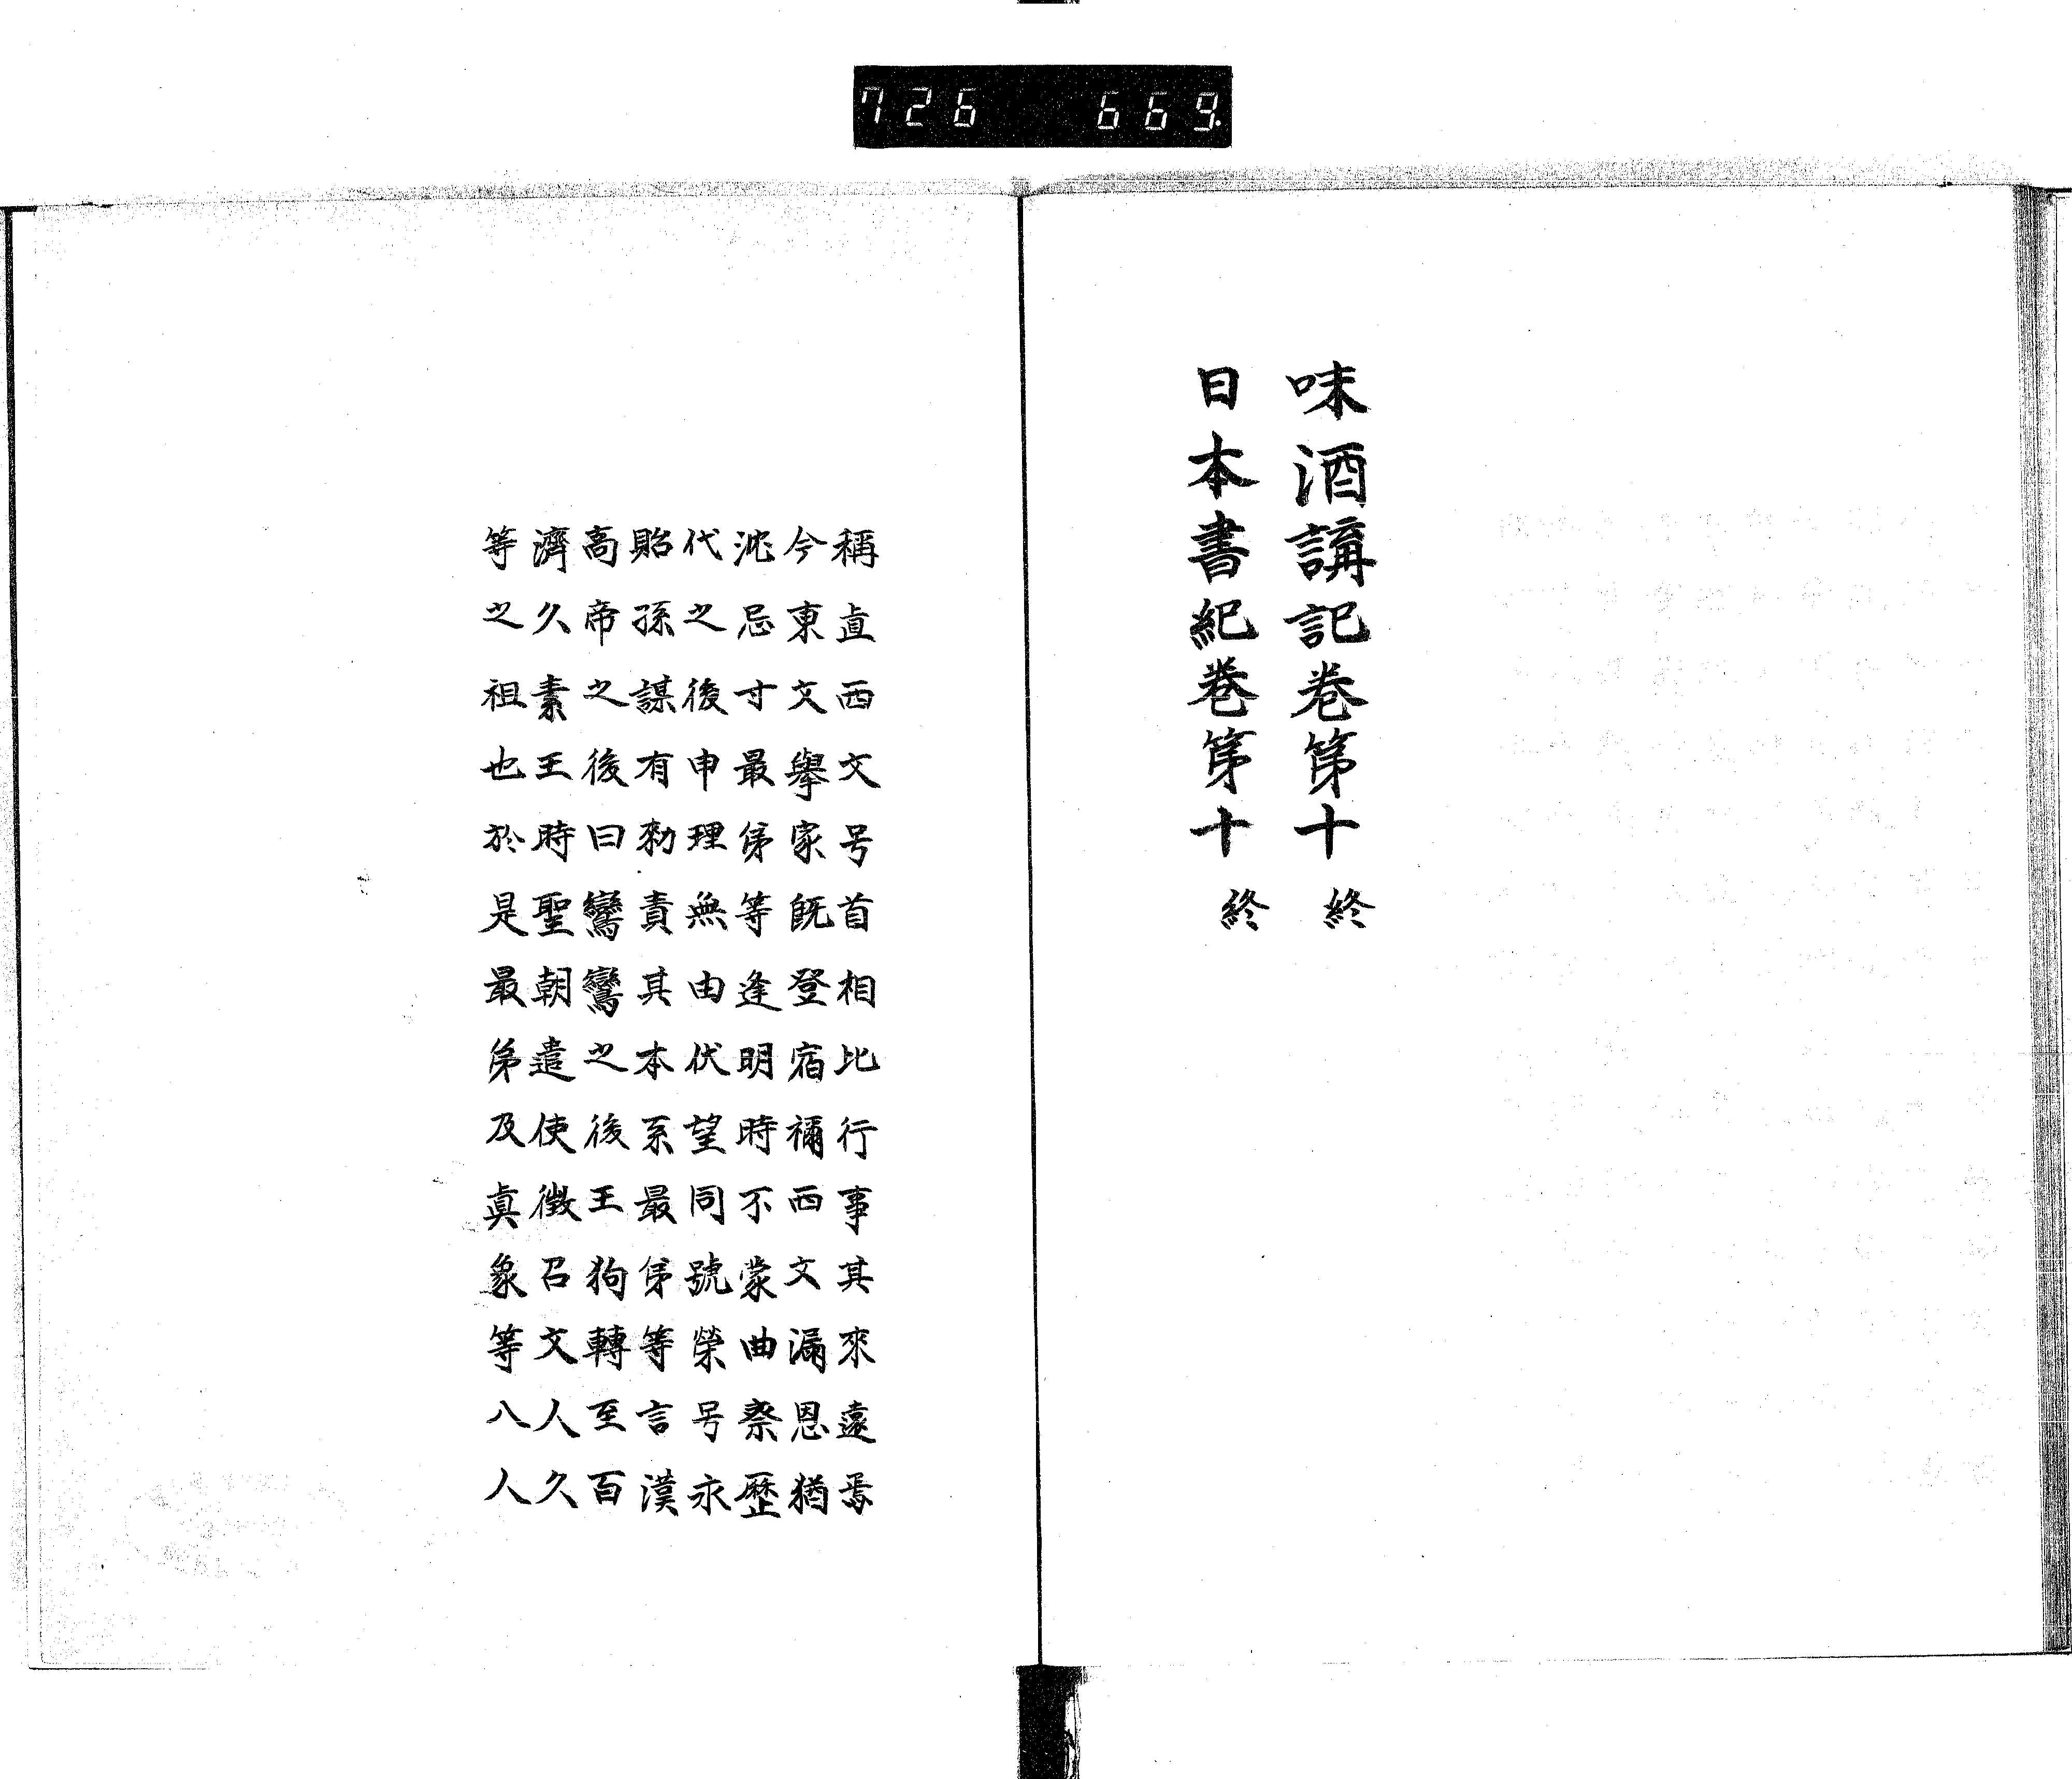 726 669.
味酒講記卷第十 終
日本書紀卷第十 終
稱直西文号首相比行事其來遠焉
今東文擧家既登宿禰西文漏恩猶
沈忌寸最弟等逢明時不蒙曲察歷
代之後申理無由伏望同號榮号永
貽孫謀有勑責其本系最弟等言漢
高帝之後曰鸞鸞之後王狗轉至百
濟久素王時聖朝遣使徵召文人久
等之祖也於是最弟及眞象等八人